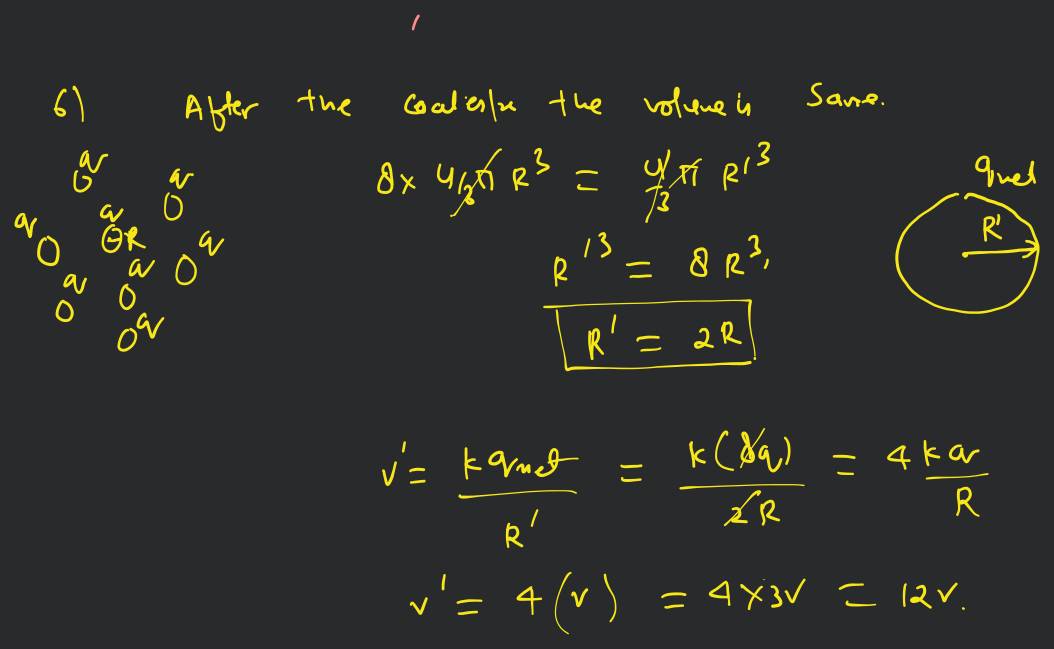 6) After the coalesce the volume is same.
q q q q q q q q
R
8 × 4/3 π R³ = 4/3 π R'³
q net
R'
R'³ = 8 R³,
R' = 2R
v' = k q net / R' = k(8q) / 2R = 4 k q / R
v' = 4 (v) = 4 × 3v = 12v.